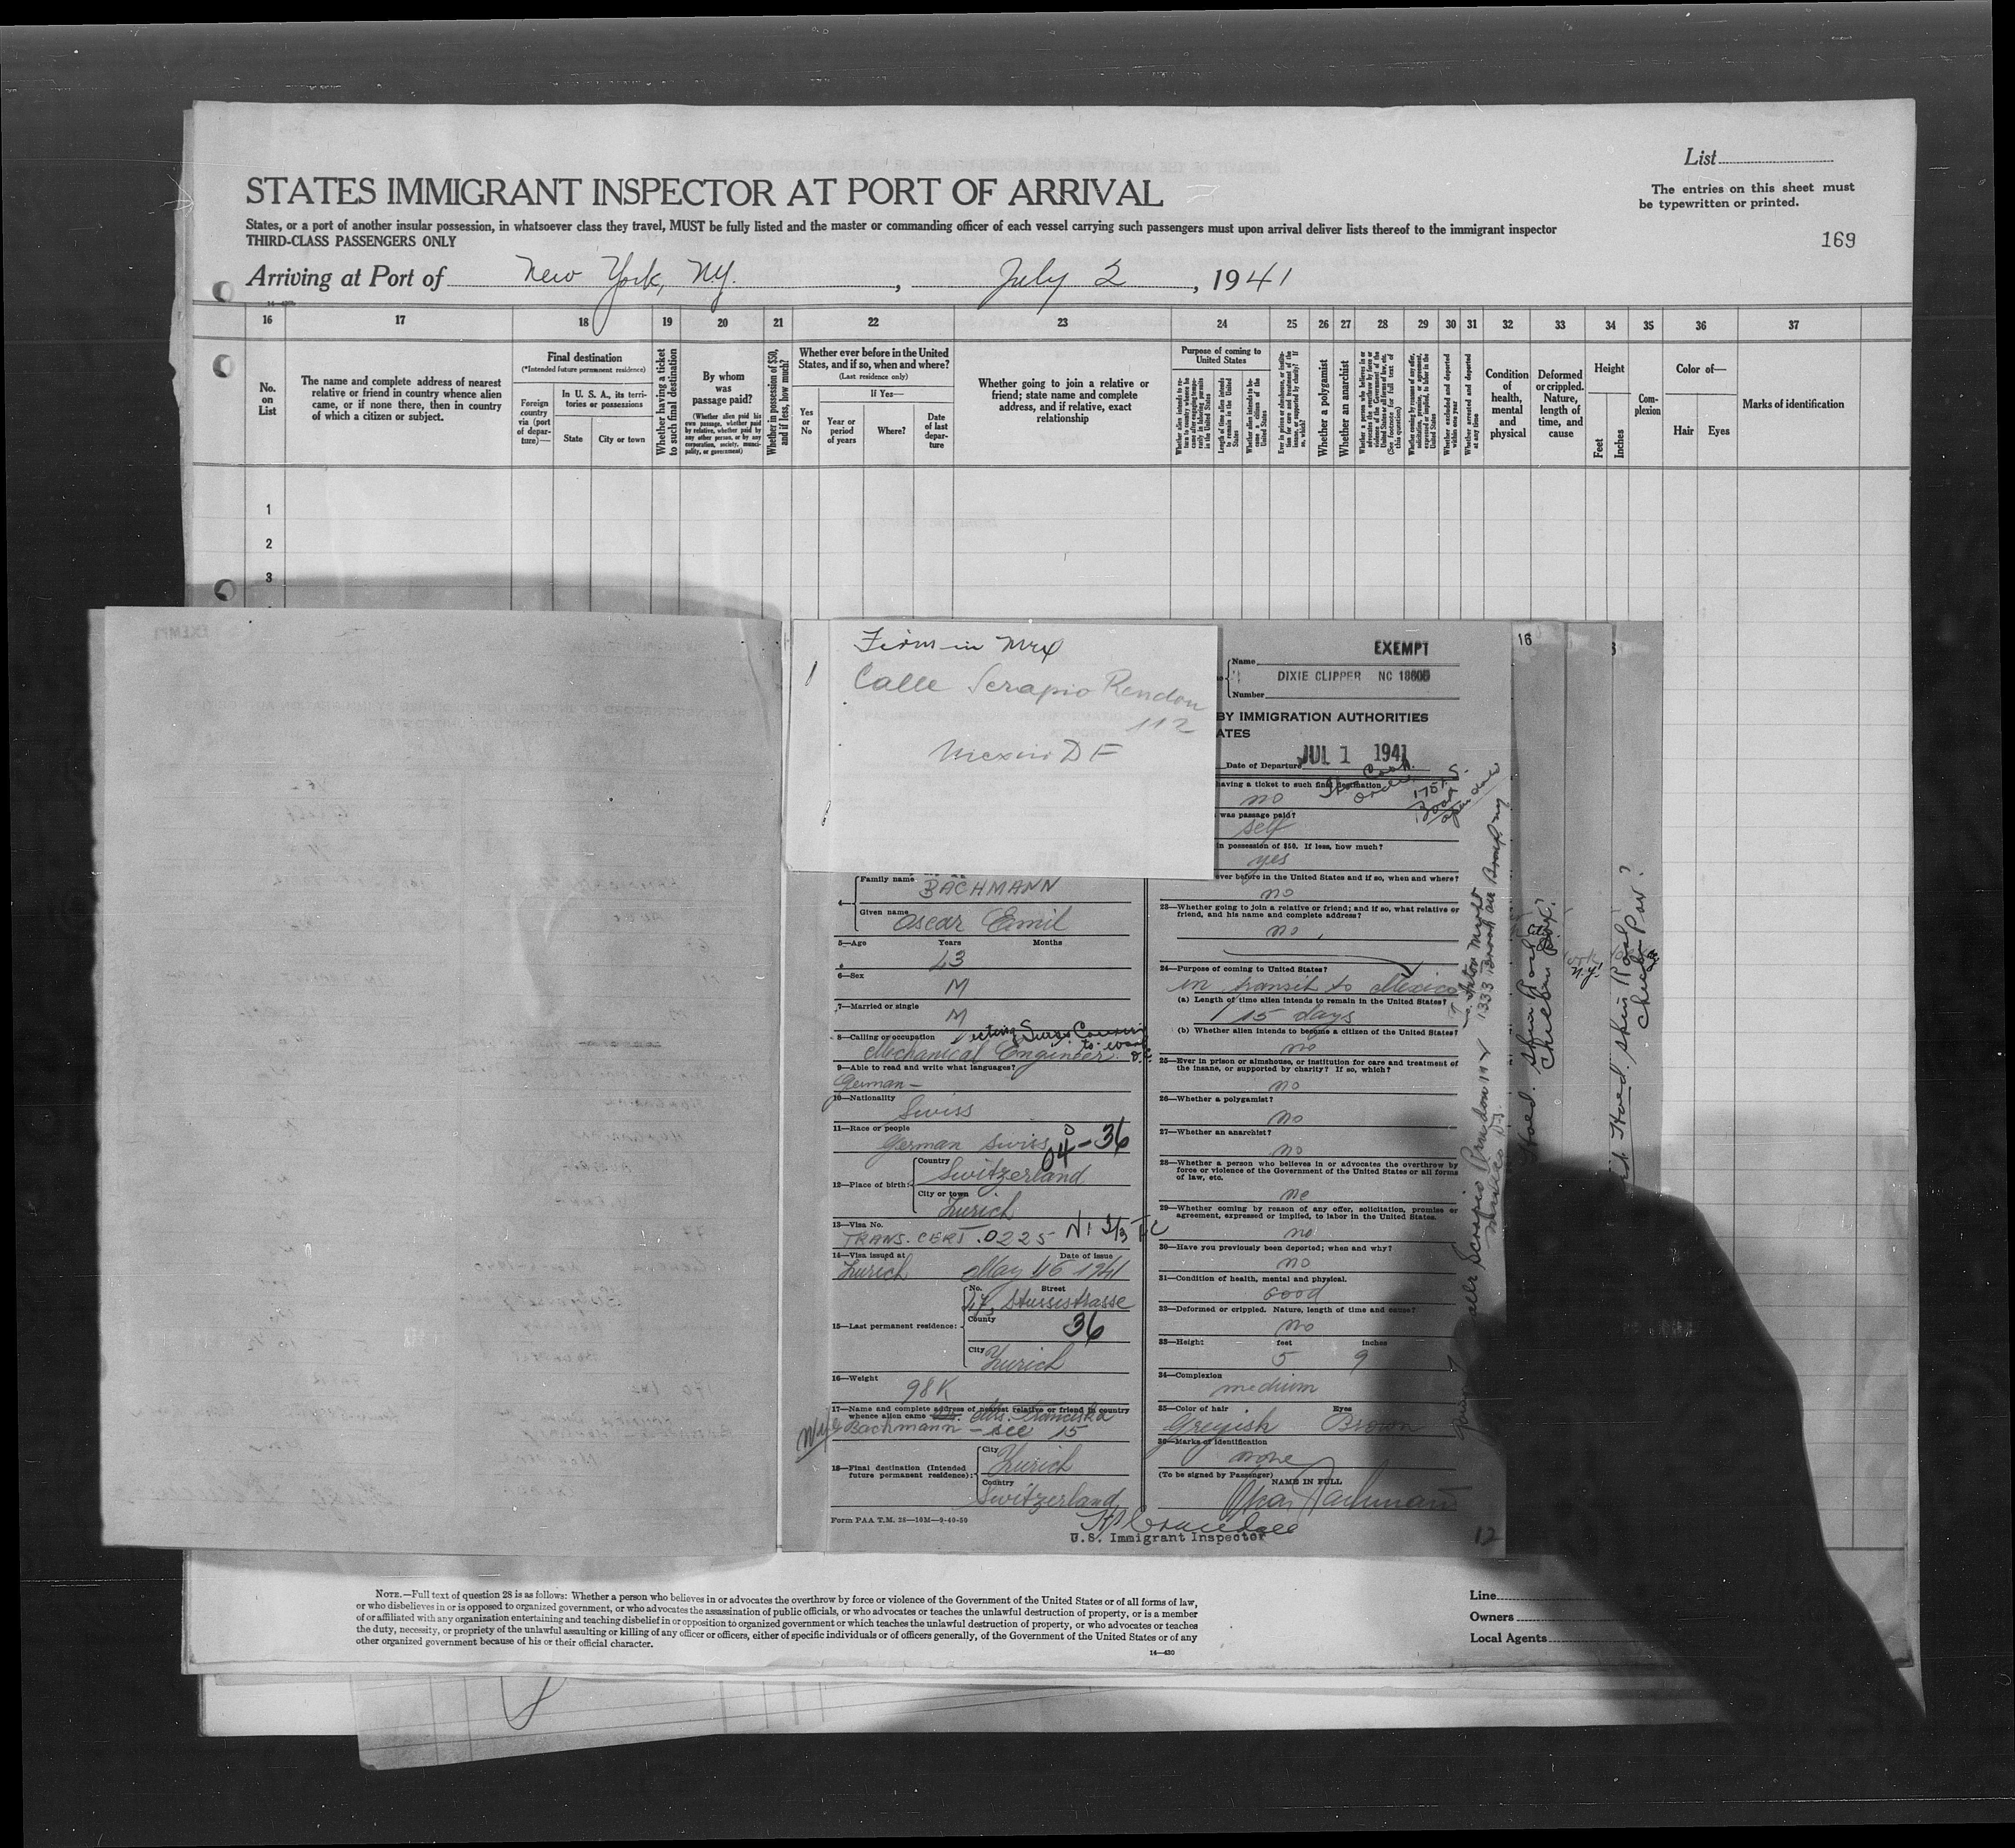 List
STATES IMMIGRANT INSPECTOR AT PORT OF ARRIVAL
The entries on this sheet must
be typewritten or printed.
States, or a port of another insular possession, in whatsoever class they travel, MUST be fully listed and the master or commanding officer of each vessel carrying such passengers must upon arrival deliver lists thereof to the immigrant inspector
THIRD-CLASS PASSENGERS ONLY
169
Arriving at Port of New York, N.Y., July 2, 1941
16 17 18 19 20 21 22 23 24 25 26 27 28 29 30 31 32 33 34 35 36 37
No. on List
The name and complete address of nearest relative or friend in country whence alien came, or if none there, then in country of which a citizen or subject.
Final destination
(*Intended future permanent residence)
Foreign country via (port of departure)—
In U. S. A., its territories or possessions
State
City or town
Whether having a ticket to such final destination
By whom was passage paid?
(Whether alien paid his own passage, whether paid by relative, whether paid by any other person, or by any corporation, society, municipality, or government)
Whether in possession of $50, and if less, how much?
Whether ever before in the United States, and if so, when and where?
(Last residence only)
Yes or No
If Yes—
Year or period of years
Where?
Date of last departure
Whether going to join a relative or friend; state name and complete address, and if relative, exact relationship
Purpose of coming to United States
Length of time alien intends to remain in the United States
Whether alien intends to become a citizen of the United States
Whether a polygamist
Whether an anarchist
Whether excluded and deported within one year
Whether arrested and deported at any time
Condition of health, mental and physical
Deformed or crippled. Nature, length of time, and cause
Height
Feet
Inches
Complexion
Color of—
Hair
Eyes
Marks of identification
1
2
3
Firm in Mex
Calle Serapio Rendon
112
Mexico D F
EXEMPT
Name
DIXIE CLIPPER NC 18605
Number
BY IMMIGRATION AUTHORITIES
ATES
Date of Departure JUL 1 1941
having a ticket to such final destination
no
was passage paid?
self
in possession of $50. If less, how much?
yes
ever before in the United States and if so, when and where?
no
4— Family name BACHMANN
Given name Oscar Emil
5—Age Years Months
43
6—Sex
M
7—Married or single
M
8—Calling or occupation
Mechanical Engineer
9—Able to read and write what languages?
German—
10—Nationality
Swiss
11—Race or people
German Swiss
04-36
12—Place of birth: Country Switzerland
City or town
Zurich
13—Visa No.
TRANS. CERT. 0225
14—Visa issued at Date of issue
Zurich May 1941
No. Street
15—Last permanent residence:
County
36
City Zurich
16—Weight
98 K
17—Name and complete address of nearest relative or friend in country
whence alien came Mrs. Franciska
Wife Bachmann — see 15
18—Final destination (Intended future permanent residence): City Zurich
Country
Switzerland
Form PAA T.M. 28—10M—9-40-50
23—Whether going to join a relative or friend; and if so, what relative or
friend, and his name and complete address?
no
24—Purpose of coming to United States?
in transit to Mexico
(a) Length of time alien intends to remain in the United States?
15 days
(b) Whether alien intends to become a citizen of the United States?
no
25—Ever in prison or almshouse, or institution for care and treatment of
the insane, or supported by charity? If so, which?
no
26—Whether a polygamist?
no
27—Whether an anarchist?
no
28—Whether a person who believes in or advocates the overthrow by
force or violence of the Government of the United States or all forms
of law, etc.
no
29—Whether coming by reason of any offer, solicitation, promise or
agreement, expressed or implied, to labor in the United States.
no
30—Have you previously been deported; when and why?
no
31—Condition of health, mental and physical.
Good
32—Deformed or crippled. Nature, length of time and cause?
no
33—Height: feet inches
5 9
34—Complexion
medium
35—Color of hair Eyes
Greyish Brown
36—Marks of identification
none
(To be signed by Passenger)
NAME IN FULL
Oscar Bachmann
U.S. Immigrant Inspector
12
16
NOTE.—Full text of question 28 is as follows: Whether a person who believes in or advocates the overthrow by force or violence of the Government of the United States or of all forms of law,
or who disbelieves in or is opposed to organized government, or who advocates the assassination of public officials, or who advocates or teaches the unlawful destruction of property, or is a member
of or affiliated with any organization entertaining and teaching disbelief in or opposition to organized government or which teaches the unlawful destruction of property, or who advocates or teaches
the duty, necessity, or propriety of the unlawful assaulting or killing of any officer or officers, either of specific individuals or of officers generally, of the Government of the United States or of any
other organized government because of his or their official character.
14—430
Line
Owners
Local Agents